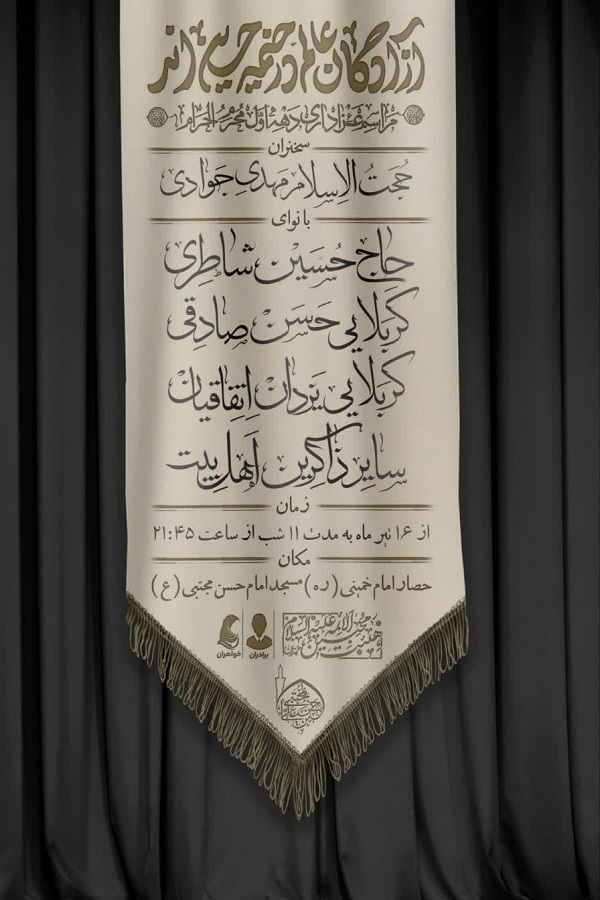 آزادگان عالم در خیمه حسین اند
مراسم عزاداری دهه اول محرم الحرام
سخنران
حجت الاسلام مهدی جوادی
بانوای
حاج حسین شاطری
کربلایی حسن صادقی
کربلایی یزدان اتفاقیان
سایر ذاکرین اهل بیت
زمان
از ۱۶ تیر ماه به مدت ۱۱ شب از ساعت ۲۱:۴۵
مکان
حصار امام خمینی (ره) مسجد امام حسن مجتبی (ع)
برادران
خواهران